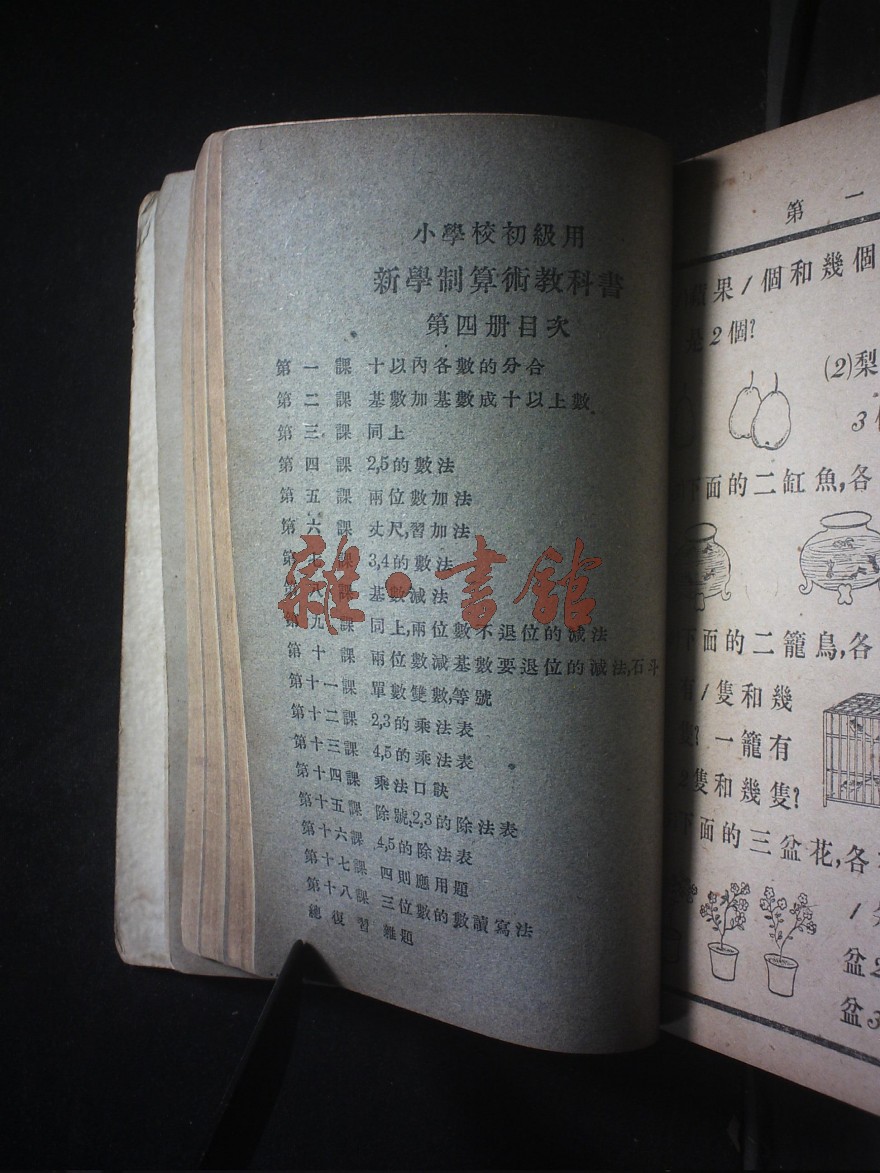 小學校初級用
新學制算術教科書
第四册目次
第一課 十以內各數的分合
第二課 基數加基數成十以上數
第三課 同上
第四課 2,5的數法
第五課 兩位數加法
第六課 丈尺,習加法
第七課 3,4的數法
第八課 基數減法
第九課 同上,兩位數不退位的減法
第十課 兩位數減基數要退位的減法,石斗
第十一課 單數雙數,等號
第十二課 2,3的乘法表
第十三課 4,5的乘法表
第十四課 乘法口訣
第十五課 除號,2,3的除法表
第十六課 4,5的除法表
第十七課 四則應用題
第十八課 三位數的數讀寫法
總復習 雜題
雜·書館
第一
果1個和幾個
是2個?
(2)梨
3
下面的二缸魚,各
下面的二籠鳥,各
有1隻和幾
一籠有
2隻和幾隻?
下面的三盆花,各
1
盆2
盆3